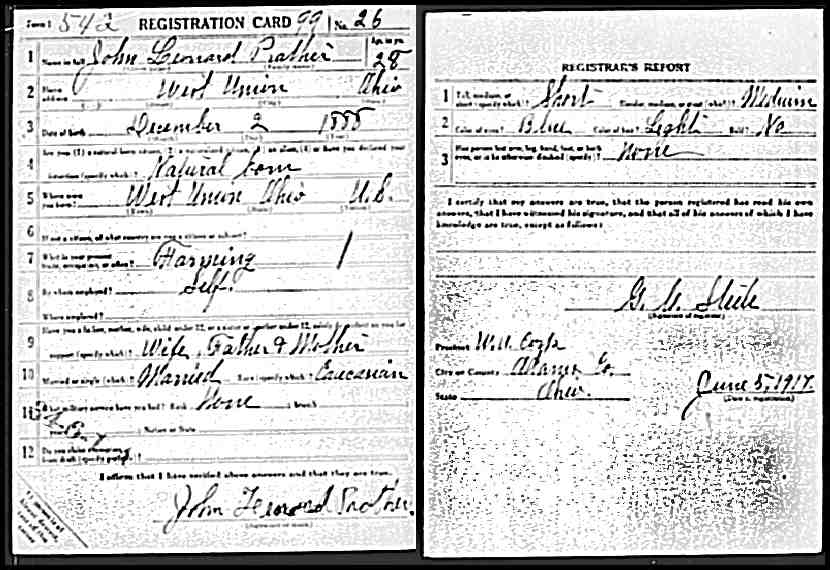 Form 1 542 REGISTRATION CARD 99 No. 26
1 Name in full John Leonard Prather Age, in yrs. 28
(Given name) (Family name)
2 Home address West Union Ohio
(No.) (Street) (City) (State)
3 Date of birth December 2 1888
(Month) (Day) (Year)
Are you (1) a natural-born citizen, (2) a naturalized citizen, (3) an alien, (4) or have you declared your
4 intention (specify which)? Natural born
5 Where were you born? West Union Ohio U.S.
(Town) (State) (Nation)
6 If not a citizen, of what country are you a citizen or subject?
7 What is your present trade, occupation, or office? Farming 1
8 By whom employed? Self.
Where employed?
9 Have you a father, mother, wife, child under 12, or a sister or brother under 12, solely dependent on you for
support (specify which)? Wife, Father & Mother
10 Married or single (which)? Married Race (specify which)? Caucasian
11 What military service have you had? Rank None ; branch
years ; Nation or State
12 Do you claim exemption from draft (specify grounds)?
I affirm that I have verified above answers and that they are true.
John Leonard Prather.
(Signature or mark)
REGISTRAR'S REPORT
1 Tall, medium, or short (specify which)? Short Slender, medium, or stout (which)? Medium
2 Color of eyes? Blue Color of hair? Light Bald? No
3 Has person lost arm, leg, hand, foot, or both eyes, or is he otherwise disabled (specify)? None
I certify that my answers are true, that the person registered has read his own
answers, that I have witnessed his signature, and that all of his answers of which I have
knowledge are true, except as follows:
(Signature of registrar)
Precinct
City or County Adams Co.
State Ohio.
June 5, 1917.
(Date of registration)